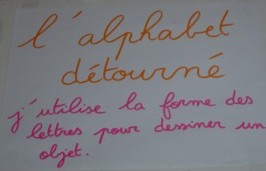 l'alphabet
détourné
j'utilise la forme des
lettres pour dessiner un
objet.